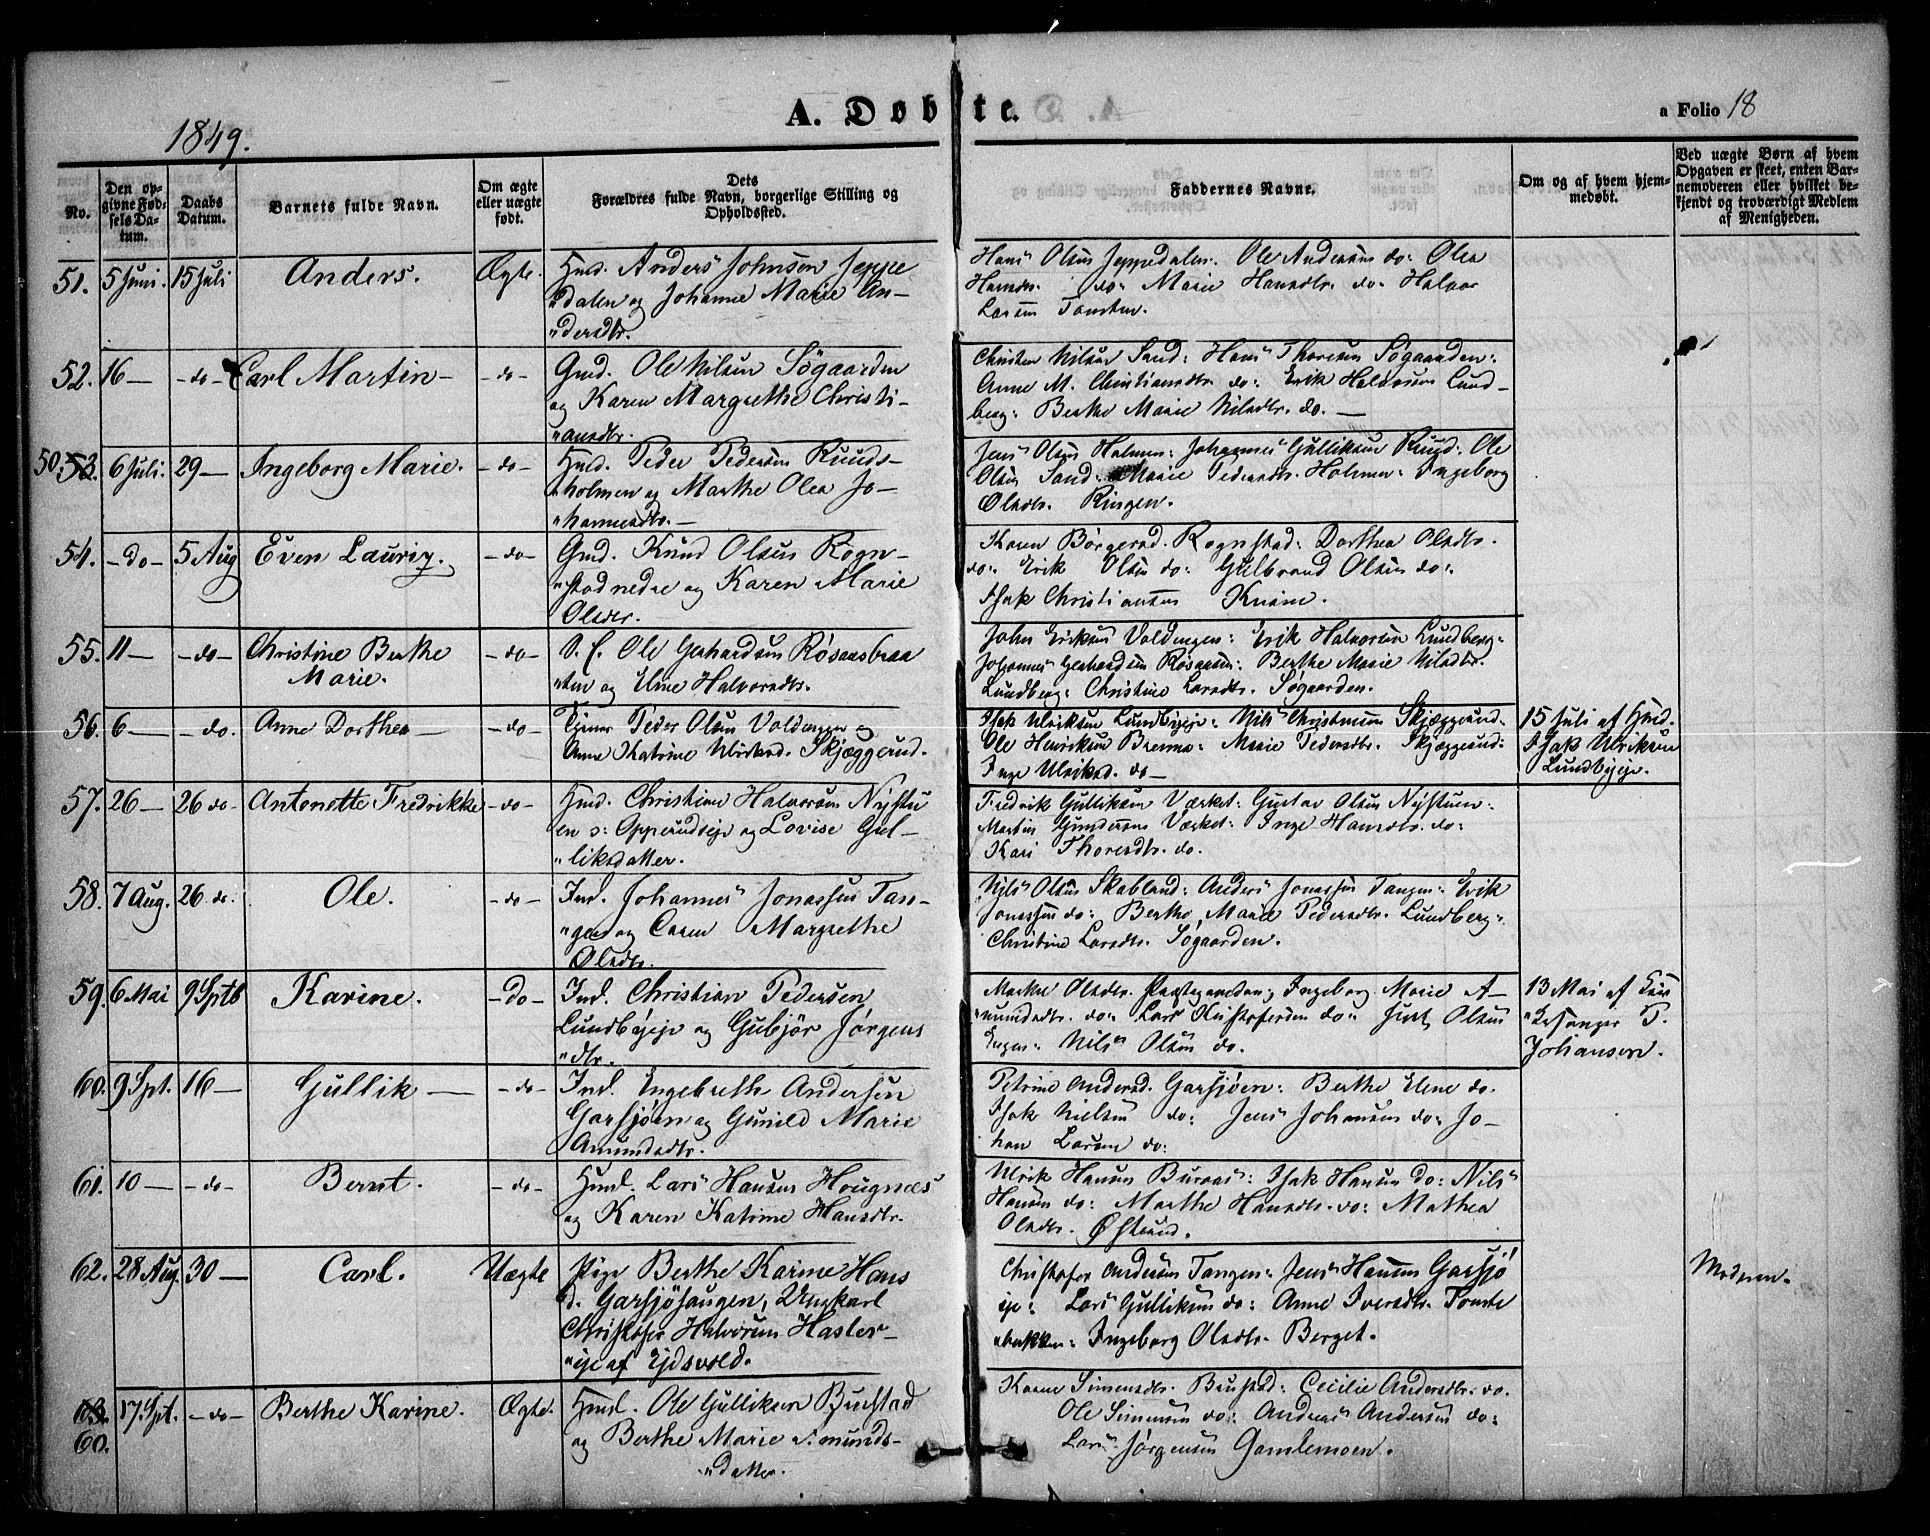 1849.
A. Døbte.
a Folio 18
No.
Den op-
givne Fød-
sels Da-
tum.
Daabs
Datum.
Barnets fulde Navn.
Om ægte
eller uægte
født.
Dets
Forældres fulde Navn, borgerlige Stilling og
Opholdssted.
Faddernes Navne.
Om og af hvem hjem-
medøbt.
Ved uægte Børn af hvem
Opgaven er skeet, enten Bar-
nemoderen eller hvilket be-
kjendt og troværdigt Medlem
af Menigheden.
51. 5 Juni. 15 Juli Anders. Ægte.
Hmd. Anders Johnsen Jeppe
"dalen og Johanne Marie An-
"dersdtr.
Hans Olsen Jeppedalen: Ole Andersen do: Olea
Hansdtr. do: Marie Hansdtr. do: Halvor
Larsen Tomten.
52. 16 — - do - Carl Martin - - do -
Gmd. Ole Nilsen Søgaarden
og Karen Margrethe Christi-
"ansdtr.
Christen Nilsen Sand: Hans Thoresen Søgaarden:
Anne M. Christiansdtr. do: Erik Halvorsen Lund-
berg: Berthe Marie Nilsdtr. do. —
50. 53. 6 Juli. 29 — Ingeborg Marie. - do -
Hmd. Peder Pedersen Ruuds-
"holmen og Marthe Olea Jo-
"hannesdtr. -
Jens Olsen Holmen: Johannes Gulliksen Ruud: Ole
Olsen Sand: Marie Pedersdtr. Holmen: Ingeborg
Olsdtr. Ringen.
54. - do - 5 Aug Even Lauriz. - do -
Gmd. Knud Olsen Rogn-
"stad nedre og Karen Marie
Olsdtr.
Karen Børgersd. Rognstad: Dorthea Olsdtr.
do: Erik Olsen do: Gulbrand Olsen do:
Isak Christiansen
55. 11 — - do - Christine Berthe
Marie. - do -
Ole Gerhardsen Røsaasbraa
"ten og Eline Halvorsdtr.
John Eriksen Voldengen: Erik Halvorsen Lundberg:
Johannes Gerhardsen Røsaasen: Berthe Marie Nilsdtr.
Lundberg: Christine Larsdtr. Søgaarden.
56. 6 — - do. Anne Dorthea — - do -
Tjener Peder Olsen Voldengen og
Anne Kathrine Ulriksd. Skjæggerud.
Isak Ulriksen Lundbyeje: Nils Christensen Skjæggerud:
Ole Henriksen Brenna: Marie Pedersdtr. Skjæggerud:
Inge Ulriksd. do —
15 Juli af Hmd.
Isak Ulriksen
Lundbyeje.
57. 26 — 26 do - Antonette Fredrikke - do -
Hmd. Christian Halvorsen Nystu
en s: Opperudseje og Lovise Gul-
"liksdatter.
Fredrik Gulliksen Værket: Gustav Olsen Nystuen:
Martin Gundersen Værket: Inge Hansdtr. do:
Kari Thoresdtr. do.
58. 7 Aug. 26 do. Ole. - do -
Ind. Johannes Jonassen Tan-
"gen og Caren Margrethe
Olsdtr.
Nils Olsen Skabland: Anders Jonassen Tangen: Erik
Jonassen do: Berthe Marie Pedersdtr. Lundberg:
Christine Larsdtr. Søgaarden.
59. 6 Mai 9 Sptb Karine. - do -
Ind. Christian Pedersen
Lundbyeje og Gubjør Jørgens
"dtr.
Marthe Olsdtr. Præstegaarden; Ingeborg Marie A-
"mundsdtr. do: Lars Christofersen do: Olsen
Engen: Nils Olsen do.
13 Mai af Kir
"kesanger P.
Johansen.
60. 9 Spt. 16 — Gullik — - do -
Ind. Engebreth Andersen
Garsjøen og Gunild Marie
Amundsdtr.
Petrine Andersd. Garsjøen: Berthe Elene do.
Isak Nielsen do: Jens Johansen do: Jo-
han Larsen do:
61. 10 — - do - Bernt. - do -
Hmd. Lars Hansen Hougnæs
og Karen Katrine Hansdtr.
Ulrik Hansen Buraas: Isak Hansen do: Nils
Hansen do: Marthe Hansdtr. do: Mathea
Olsdtr. Østerud.
62. 28 Aug. 30 — Carl. Uægte
Pige Berthe Karine Hans
d. Garsjøhaugen, Ungkarl
Christofer Halvorsen Hasler-
"eje af Ejdsvold.
Christofer Andersen Tangen: Jens Hansen Garsjø
eje: Lars Gulliksen do: Anne Iversdtr. Tomte
"bakken: Ingeborg Olsdtr. Berget.
Moderen.
63. 60. 17. Spt. - do - Berthe Karine. Ægte.
Hmd. Ole Gulliksen Bjustad
og Berthe Marie Simens-
"datter.
Karen Simensdtr. Bjustad: Cecilie Andersdtr. do.
Ole Simensen do: Andreas Andersen do:
Lars Jørgensen Gamlemoen.